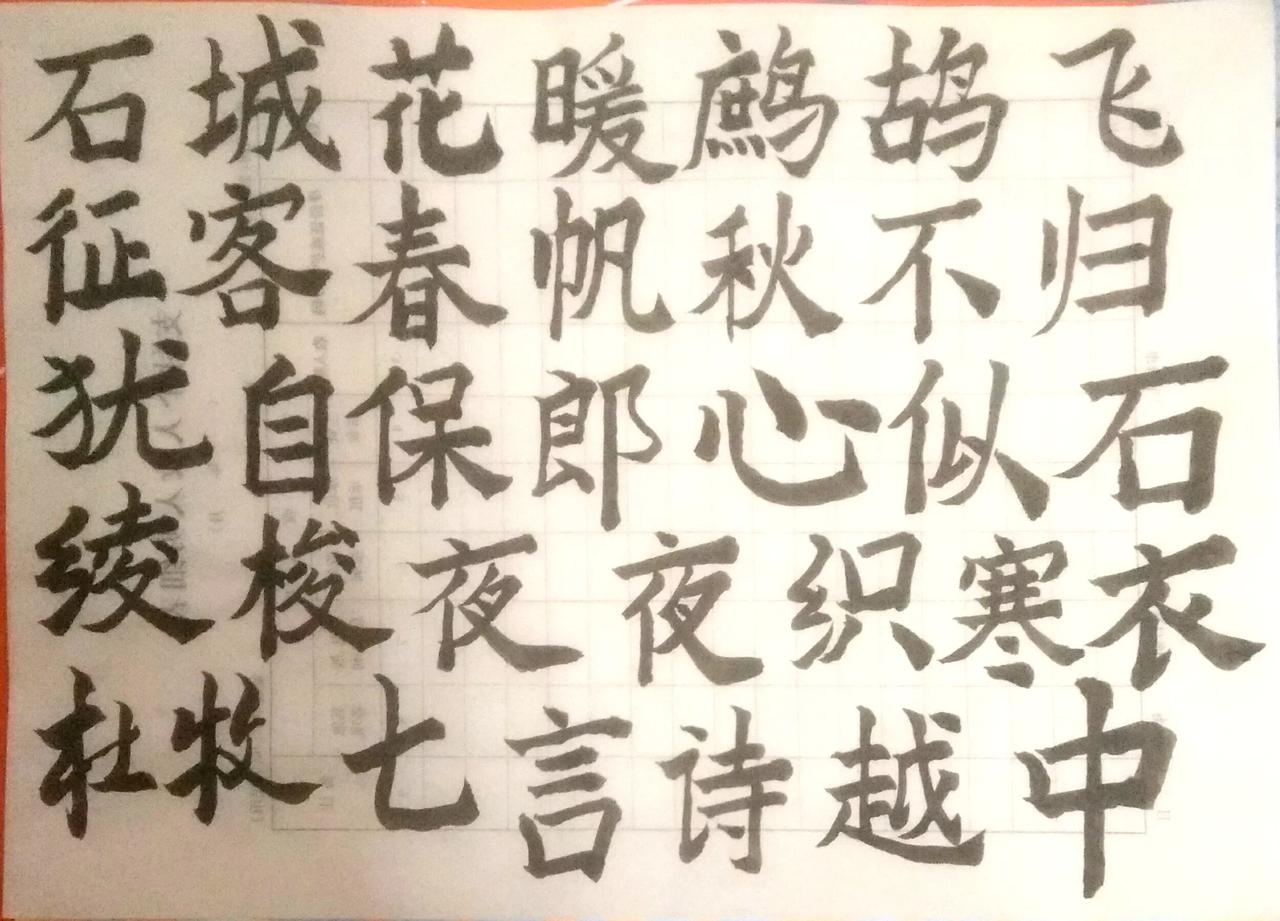 石城花暖鹧鸪飞
征客春帆秋不归
犹自保郎心似石
绫梭夜夜织寒衣
杜牧七言诗越中